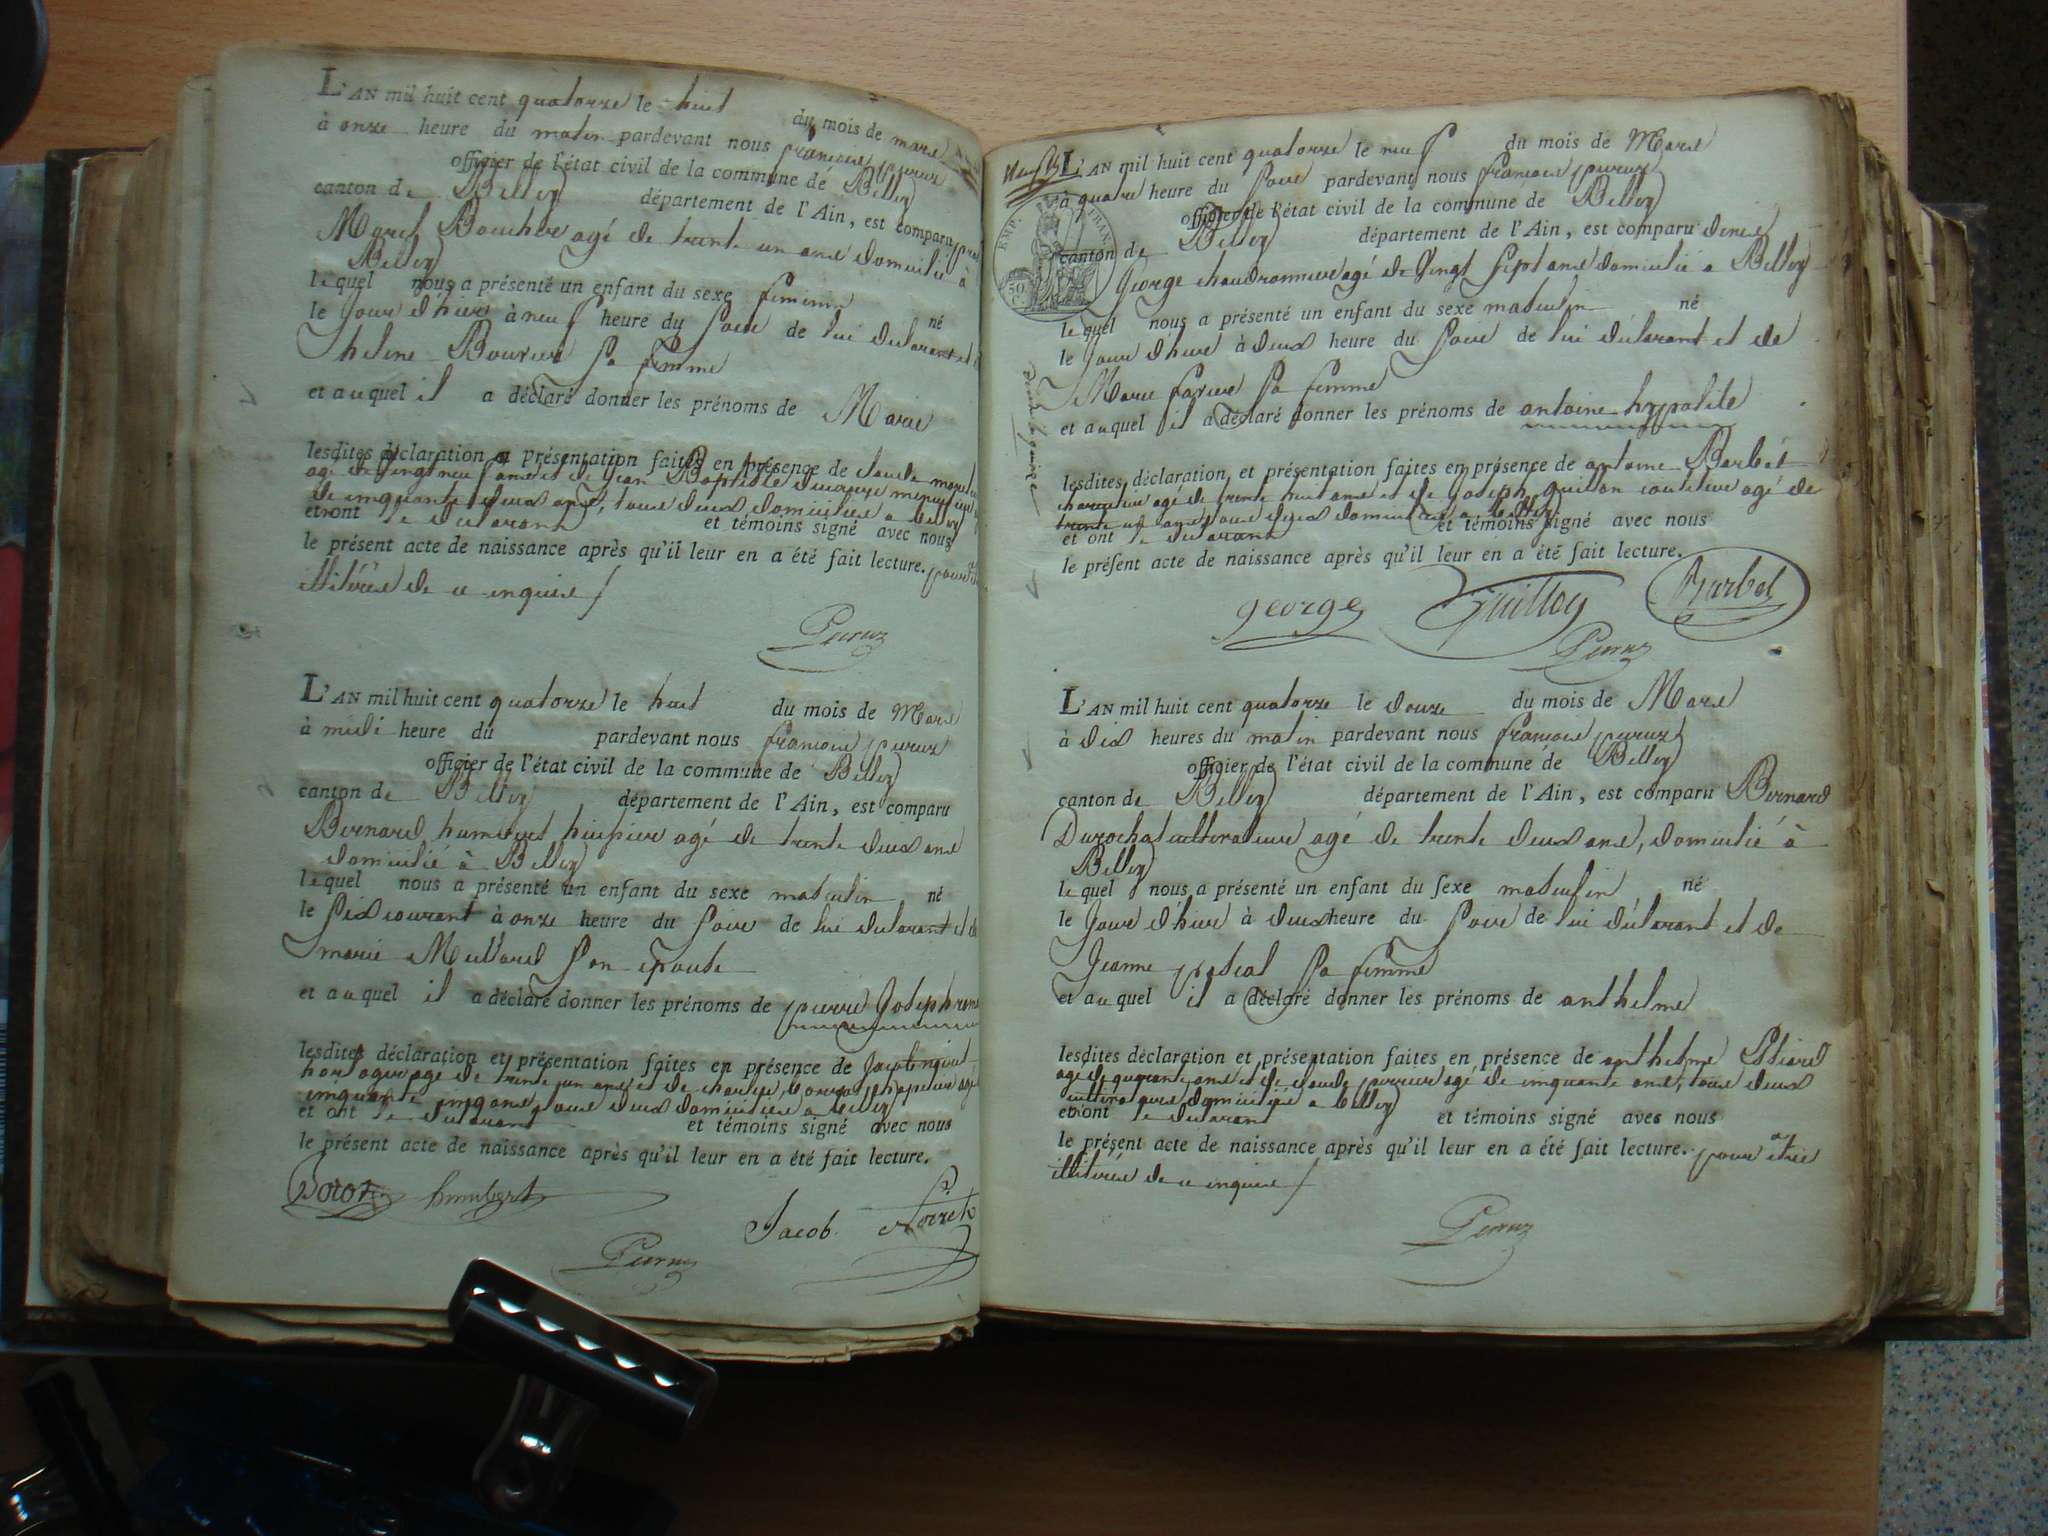 L'AN mil huit cent quatorze le huit du mois de mars
à onze heure du matin pardevant nous françois peruz
officier de l'état civil de la commune de Belley
canton de Belley département de l'Ain, est comparu
Maret Boucher agé de trente un ans domicilié à
Belley
lequel nous a présenté un enfant du sexe feminin
né
le jour d'hier à neuf heure du soir de lui déclarant et
helene Bouvier sa femme
et auquel il a déclaré donner les prénoms de Marie
lesdites déclaration et présentation faites en présence de Claude
agé de vingt neuf ans et de jean Baptiste
de cinquante deux ans, tous deux domiciliés a Belley
et ont le déclarant et témoins signé avec nous
le présent acte de naissance après qu'il leur en a été fait lecture.
illitérés de ce enquis
Peruz
L'AN mil huit cent quatorze le huit du mois de Mars
à midi heure du pardevant nous françois peruz
officier de l'état civil de la commune de Belley
canton de Belley département de l'Ain, est comparu
Bernard humbert huissier agé de trente deux ans
domicilié à Belley
lequel nous a présenté un enfant du sexe masculin né
le six courant à onze heure du soir de lui déclarant et de
marie son epouse
et auquel il a déclaré donner les prénoms de pierre Joseph
lesdites déclaration et présentation faites en présence de
horloger agé de trente un ans et de charles chappelier agé
cinquante cinq ans, tous deux domiciliés a Belley
et ont le déclarant et témoins signé avec nous
le présent acte de naissance après qu'il leur en a été fait lecture.
humbert
Jacob
Peruz
Neuf
L'AN mil huit cent quatorze le neuf du mois de Mars
à quatre heure du soir pardevant nous françois peruz
officier de l'état civil de la commune de Belley
EMP. FRAN.
50 C.
canton de Belley département de l'Ain, est comparu denis
George chaudronnier agé de vingt sept ans domicilié a Belley
lequel nous a présenté un enfant du sexe masculin né
le jour d'hier à deux heure du soir de lui déclarant et de
Marie sa femme
et auquel il a déclaré donner les prénoms de antoine hypolite
lesdites déclaration et présentation faites en présence de antoine Barbet
agé de trente huit ans et de joseph guillon agé de
trente ans tous deux domiciliés a Belley
et ont le déclarant et témoins signé avec nous
le présent acte de naissance après qu'il leur en a été fait lecture.
george Guillon Barbet
Peruz
L'AN mil huit cent quatorze le douze du mois de Mars
à dix heures du matin pardevant nous françois peruz
officier de l'état civil de la commune de Belley
canton de Belley département de l'Ain, est comparu Bernard
Durochat cultivateur agé de trente deux ans, domicilié à
Belley
lequel nous a présenté un enfant du sexe masculin né
le jour d'hier à deux heure du soir de lui déclarant et de
Jeanne sa femme
et auquel il a déclaré donner les prénoms de anthelme
lesdites déclaration et présentation faites en présence de anthelme
agé de quarante ans et de claude agé de cinquante ans, tous deux
cultivateurs domiciliés a Belley
et ont le déclarant et témoins signé avec nous
le présent acte de naissance après qu'il leur en a été fait lecture. pour etre
illitérés de ce enquis
Peruz